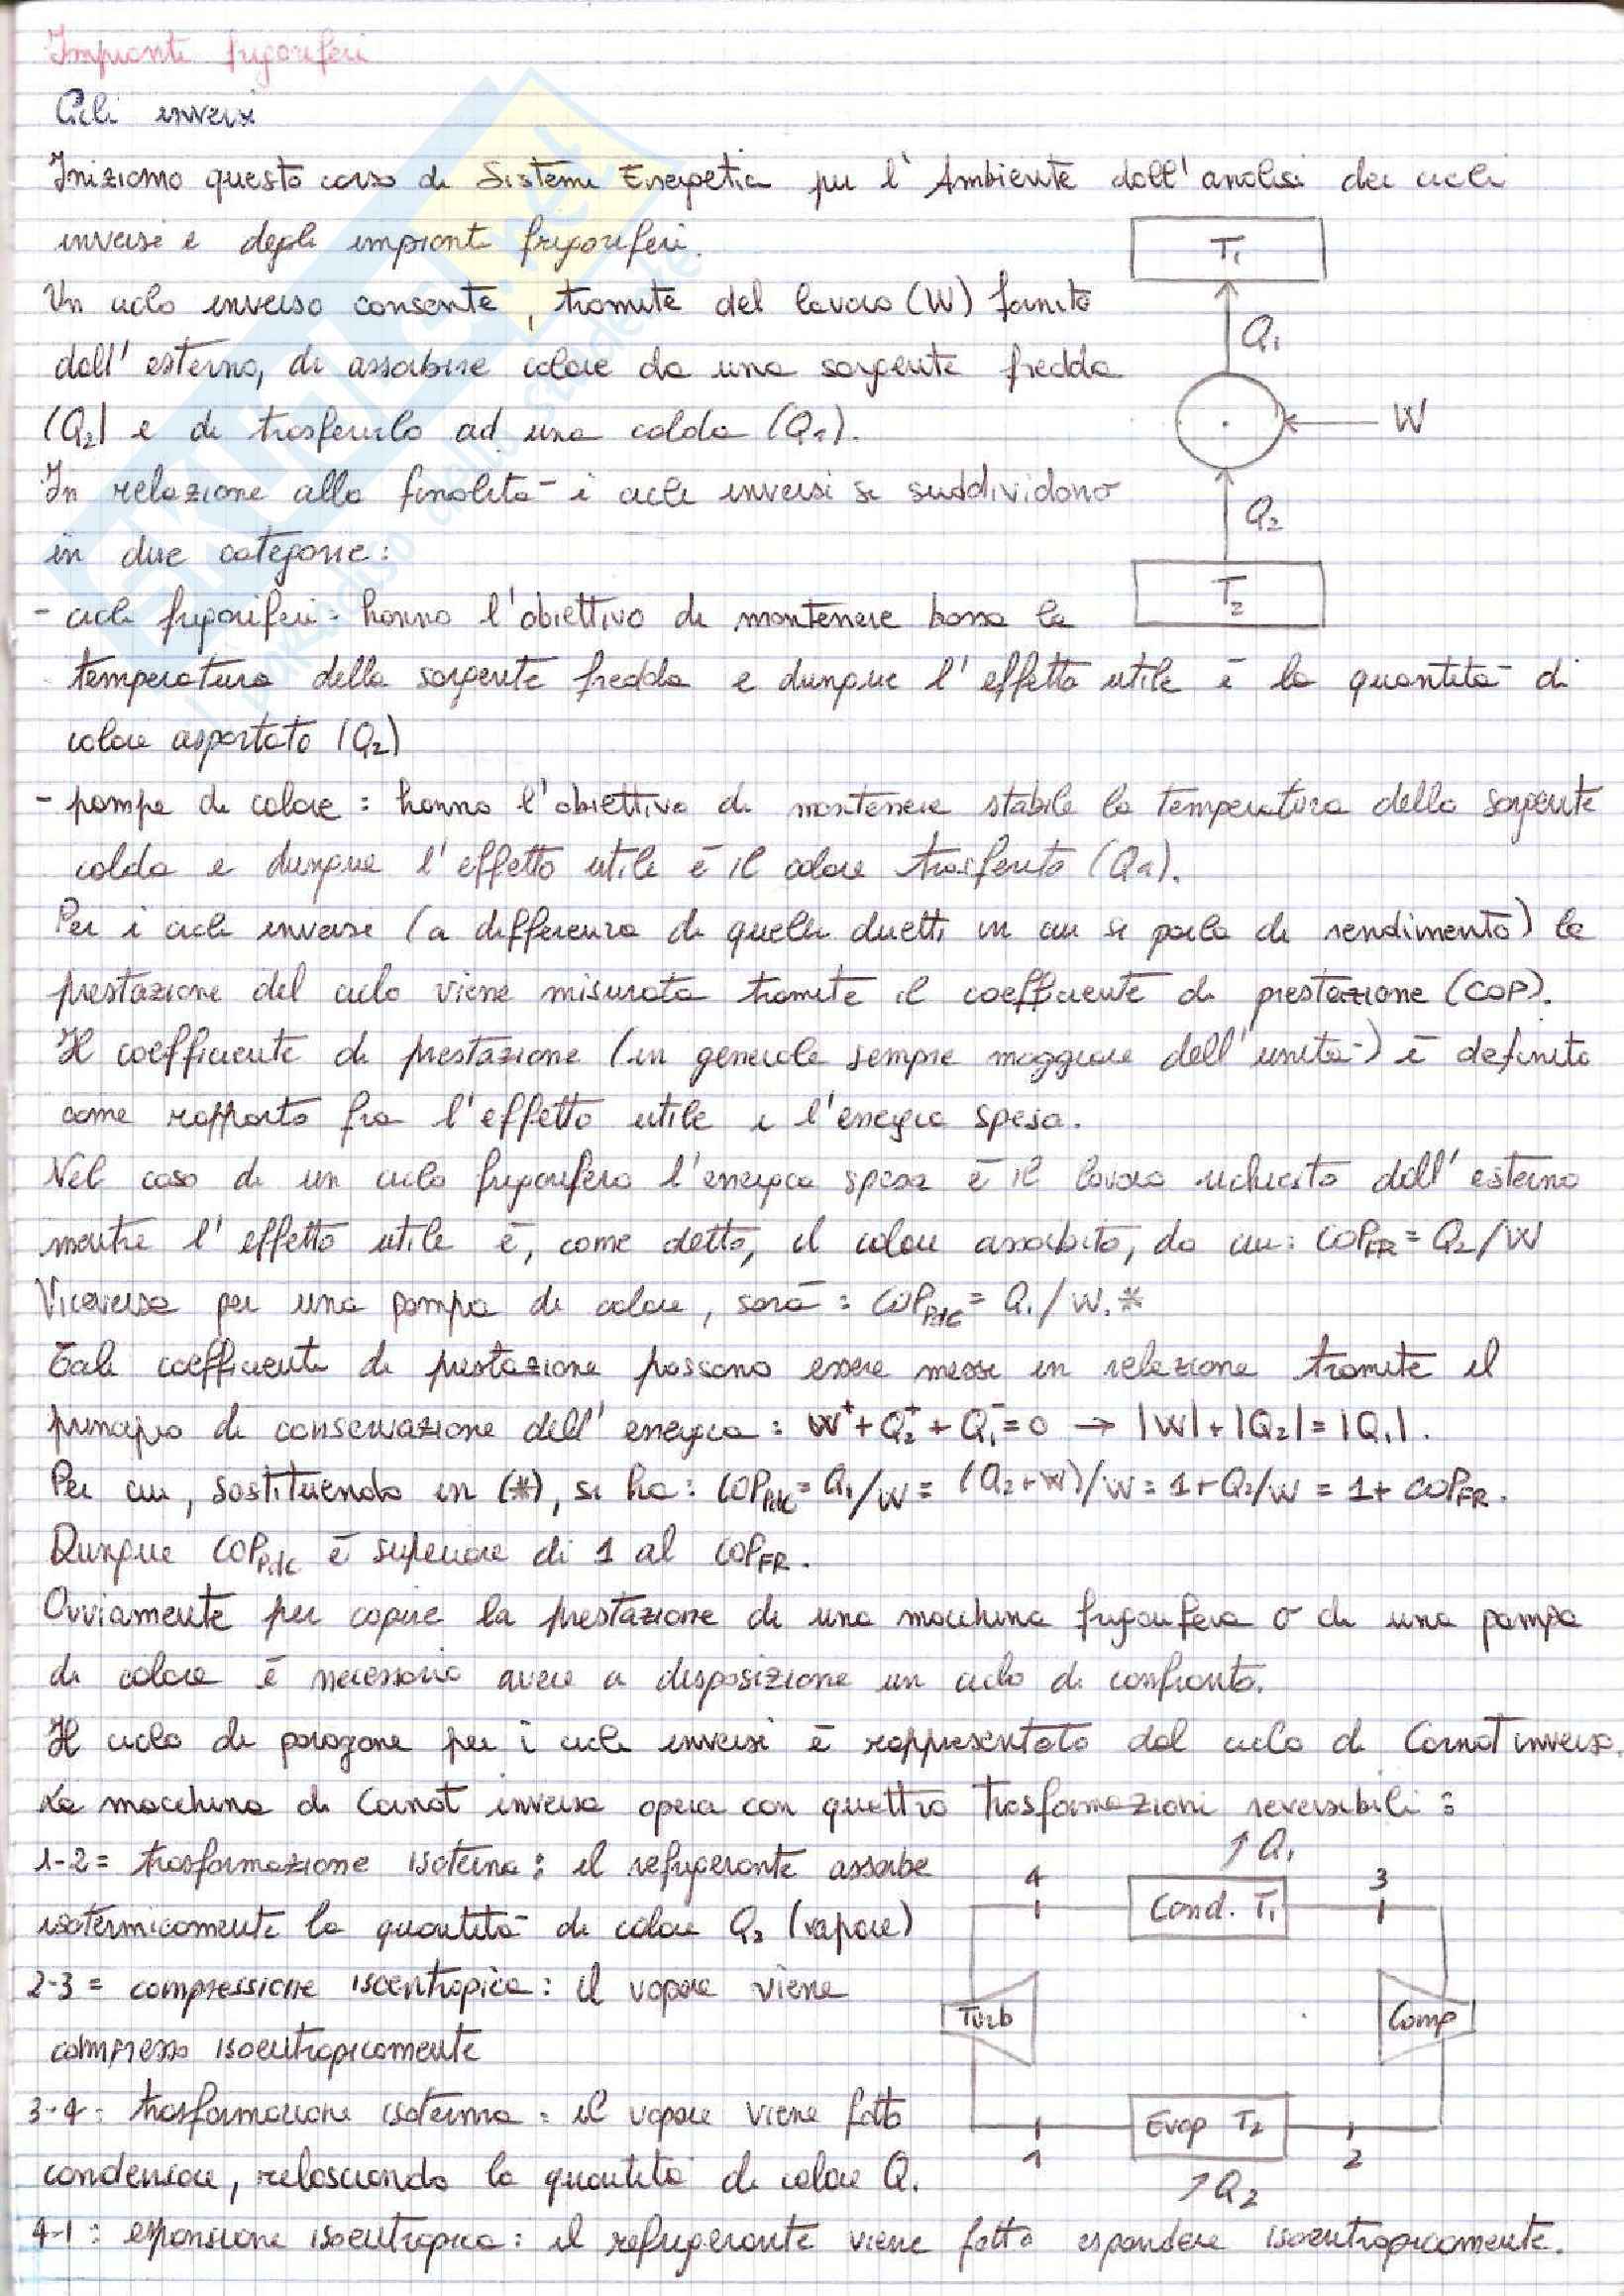 Impianti frigoriferi
Cicli inversi
Iniziamo questo corso di Sistemi Energetici per l'Ambiente dall'analisi dei cicli
inversi e degli impianti frigoriferi.
T₁
Un ciclo inverso consente, tramite del lavoro (W) fornito
Q₁
dall'esterno, di assorbire calore da una sorgente fredda
(Q₂) e di trasferirlo ad una calda (Q₁).
W
In relazione alla finalità i cicli inversi si suddividono
Q₂
in due categorie:
T₂
- cicli frigoriferi: hanno l'obiettivo di mantenere bassa la
temperatura della sorgente fredda e dunque l'effetto utile è la quantità di
calore asportato (Q₂)
- pompe di calore: hanno l'obiettivo di mantenere stabile la temperatura della sorgente
calda e dunque l'effetto utile è il calore trasferito (Q₁).
Per i cicli inversi (a differenza di quelli diretti in cui si parla di rendimento) la
prestazione del ciclo viene misurata tramite il coefficiente di prestazione (COP).
Il coefficiente di prestazione (in generale sempre maggiore dell'unità) è definito
come rapporto fra l'effetto utile e l'energia spesa.
Nel caso di un ciclo frigorifero l'energia spesa è il lavoro richiesto dall'esterno
mentre l'effetto utile è, come detto, il calore assorbito, da cui: COP_FR = Q₂/W
Viceversa per una pompa di calore, sarà: COP_PdC = Q₁/W.*
Tali coefficienti di prestazione possono essere messi in relazione tramite il
principio di conservazione dell'energia: W⁺+Q₂⁺+Q₁⁻=0 → |W|+|Q₂|=|Q₁|.
Per cui, sostituendo in (*), si ha: COP_PdC = Q₁/W = (Q₂+W)/W = 1+Q₂/W = 1+ COP_FR.
Dunque COP_PdC è superiore di 1 al COP_FR.
Ovviamente per capire la prestazione di una macchina frigorifera o di una pompa
di calore è necessario avere a disposizione un ciclo di confronto.
Il ciclo di paragone per i cicli inversi è rappresentato dal ciclo di Carnot inverso.
La macchina di Carnot inversa opera con quattro trasformazioni reversibili:
1-2 = trasformazione isoterma: il refrigerante assorbe
↑ Q₁
4 Cond. T₁ 3
isotermicamente la quantità di calore Q₂ (vapore)
2-3 = compressione isoentropica: il vapore viene
Turb Comp
compresso isoentropicamente
3-4: trasformazione isoterma: il vapore viene fatto
Evap T₂
1 2
condensare, rilasciando la quantità di calore Q₁
↑ Q₂
4-1: espansione isoentropica: il refrigerante viene fatto espandere isoentropicamente.